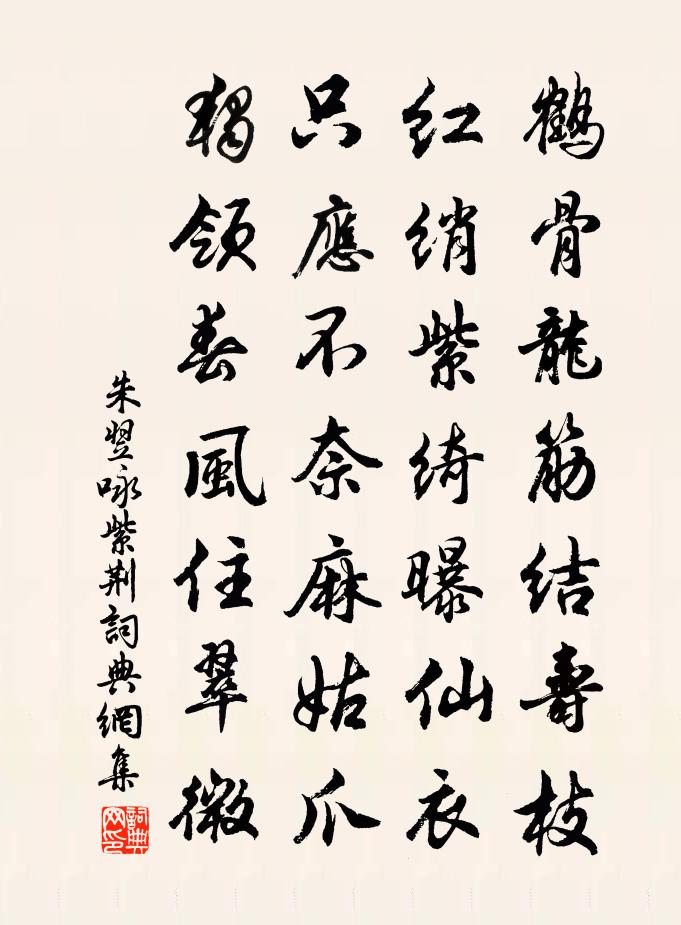 鶴骨龍筋結壽枝
紅綃紫綺曝仙衣
只應不奈麻姑爪
獨領春風住翠微
朱翌咏紫荆詞典網集
詞典網印